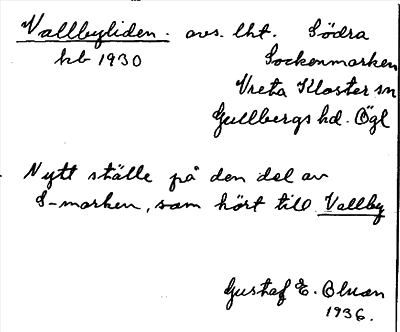 Vallbyliden. avs. lht. Södra
kb 1930 Sockenmarken
Vreta Kloster sn
Gullbergs hd. Ögl
Nytt ställe på den del av
S-marken, som hört till Vallby
Gustaf E. Olsson
1936.